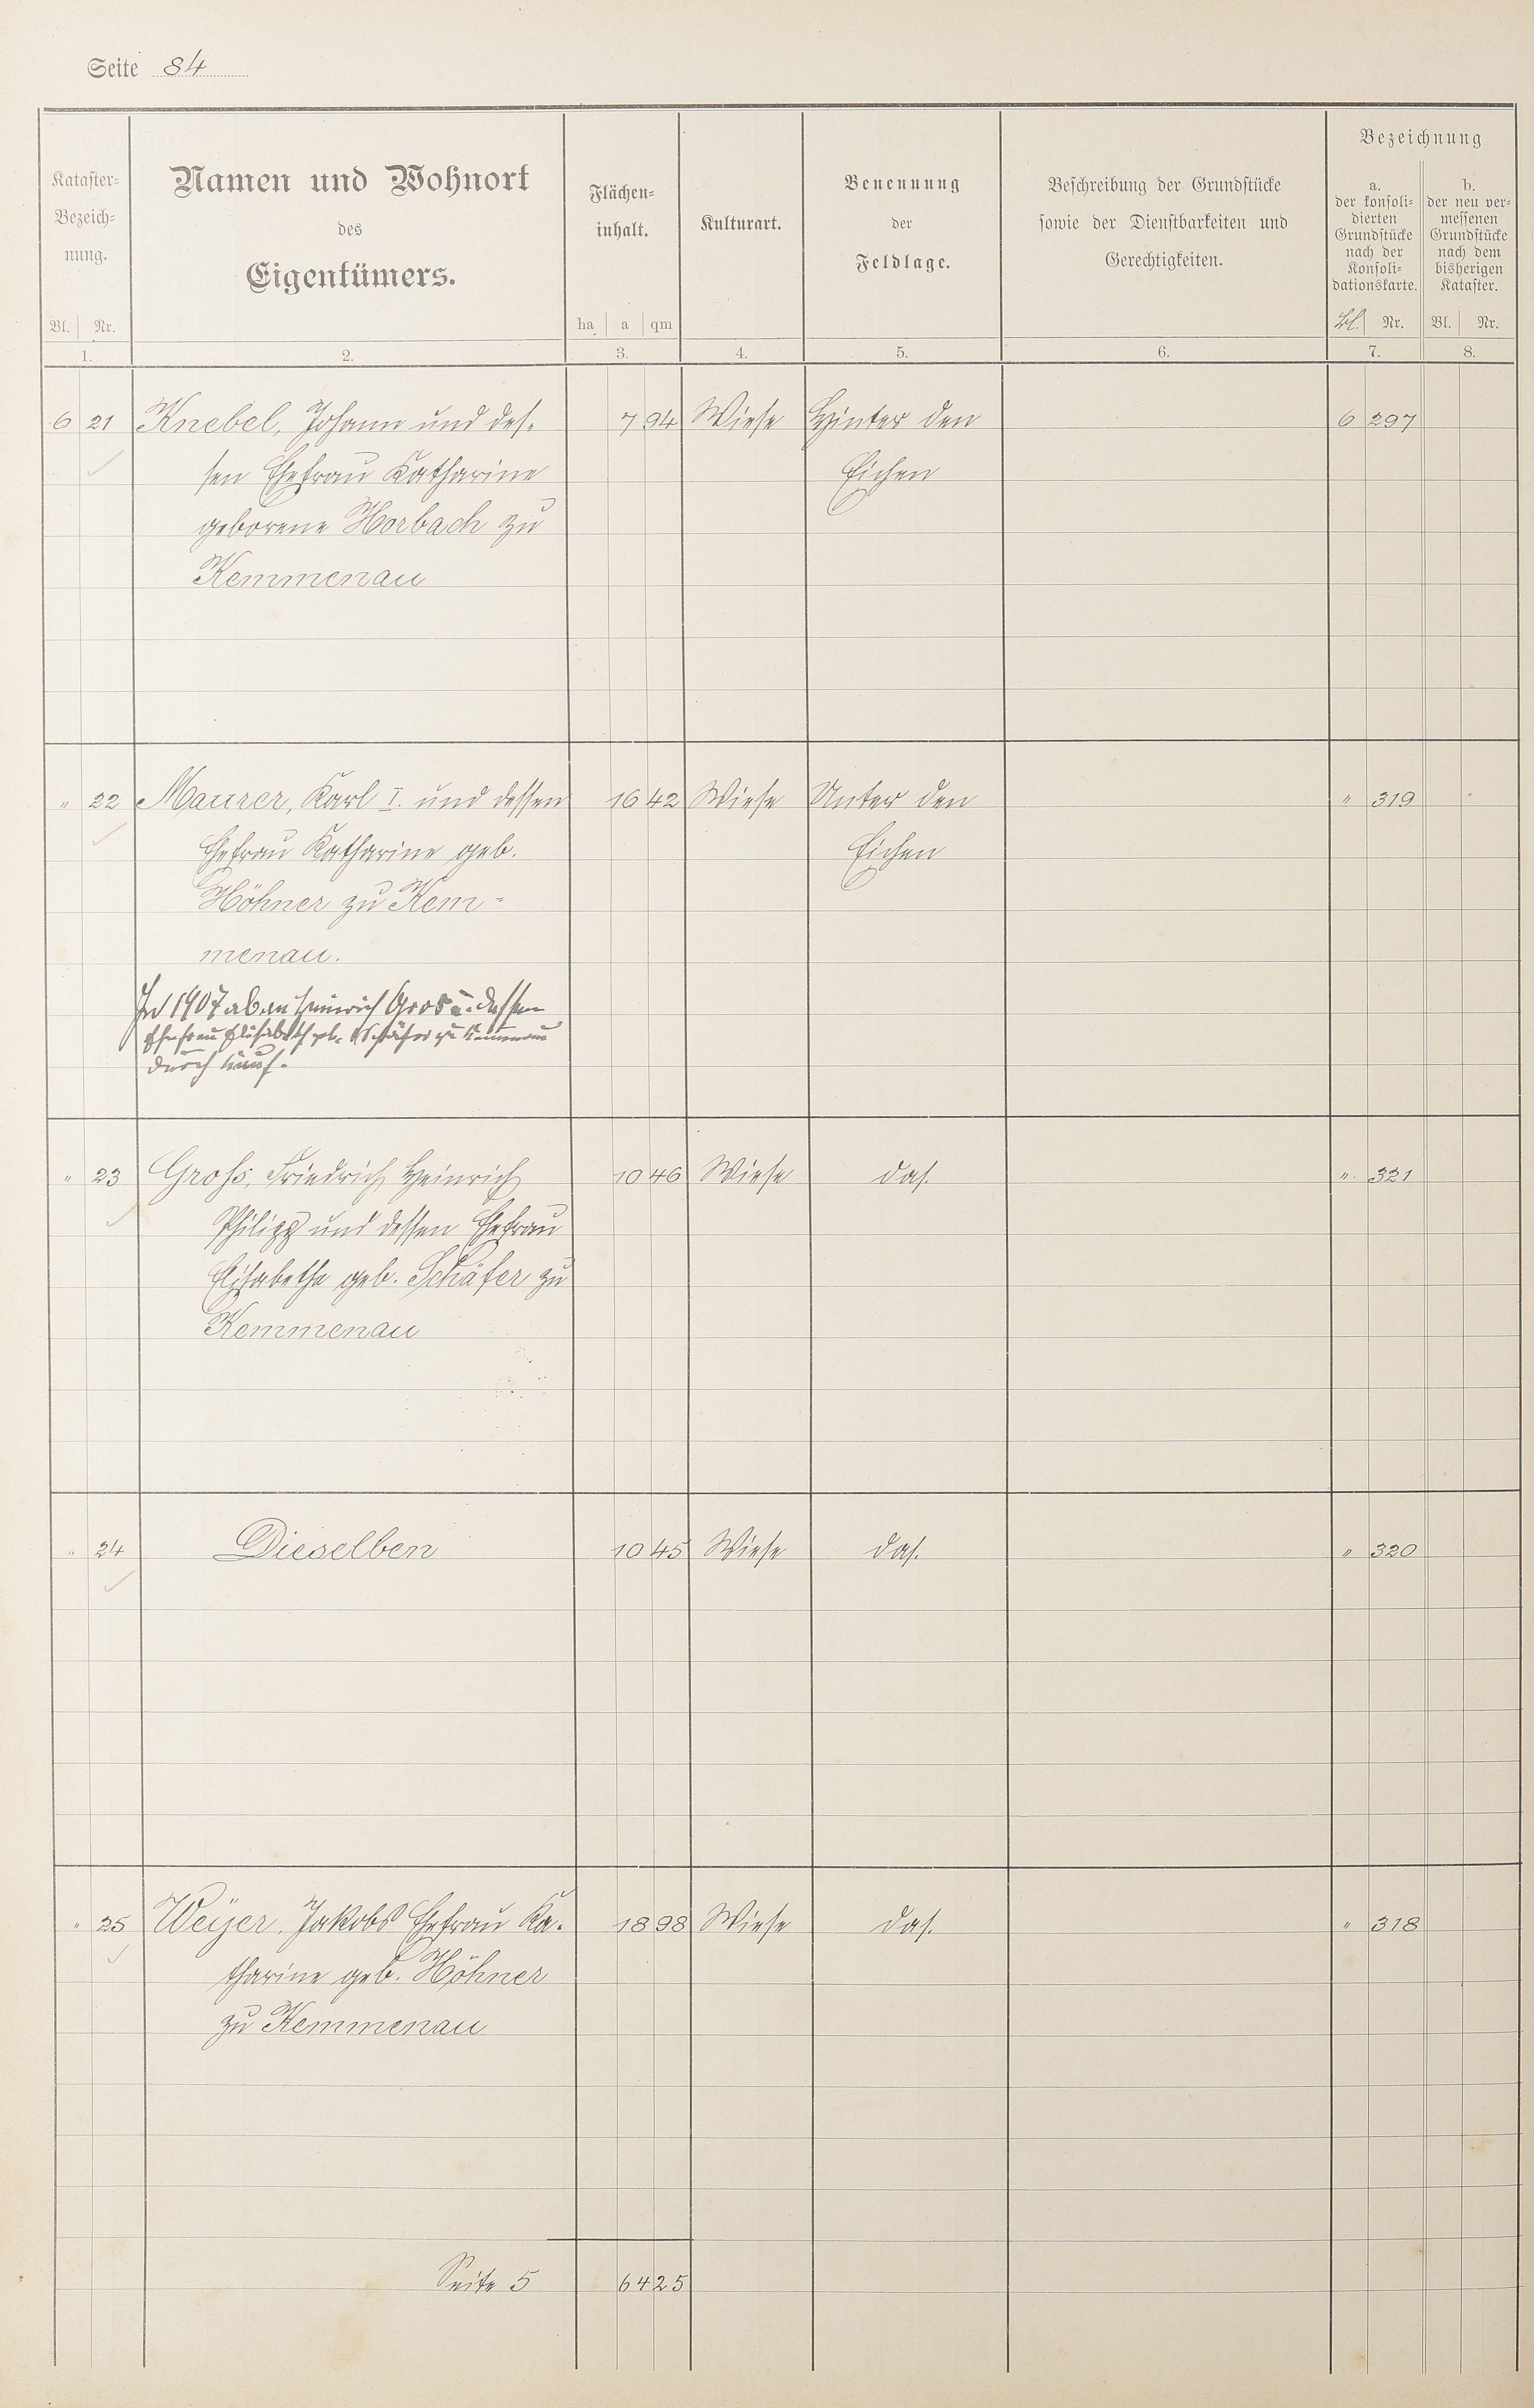 Seite 84
Kataster-
Bezeich-
nung.
Bl. Nr.
1.
Namen und Wohnort
des
Eigentümers.
2.
Flächen-
inhalt.
ha a qm
3.
Kulturart.
4.
Benennung
der
Feldlage.
5.
Beschreibung der Grundstücke
sowie der Dienstbarkeiten und
Gerechtigkeiten.
6.
Bezeichnung
a.
der konsoli-
dierten
Grundstücke
nach der
Konsoli-
dationskarte.
Bl. Nr.
7.
b.
der neu ver-
messenen
Grundstücke
nach dem
bisherigen
Kataster.
Bl. Nr.
8.
6 21 Knebel, Johann und des- 7 94 Wiese Hinter den 6 297
sen Ehefrau Katharine Eichen
geborene Horbach zu
Kemmenau
" 22 Maurer, Karl I. und dessen 16 42 Wiese Unter den " 319
Ehefrau Katharine geb. Eichen
Höhner zu Kem-
menau.
1907 ab an Heinrich Gros u. dessen
Ehefrau Elisabeth geb. Schäfer zu Kemmenau
durch Kauf.
" 23 Groß, Friedrich Heinrich 10 46 Wiese das. " 321
Philipp und dessen Ehefrau
Elisabetha geb. Schäfer zu
Kemmenau
" 24 Dieselben 10 45 Wiese das. " 320
" 25 Weijer, Jakobs Ehefrau Ka- 18 98 Wiese das. " 318
tharine geb. Höhner
zu Kemmenau
Seite 5 64 25